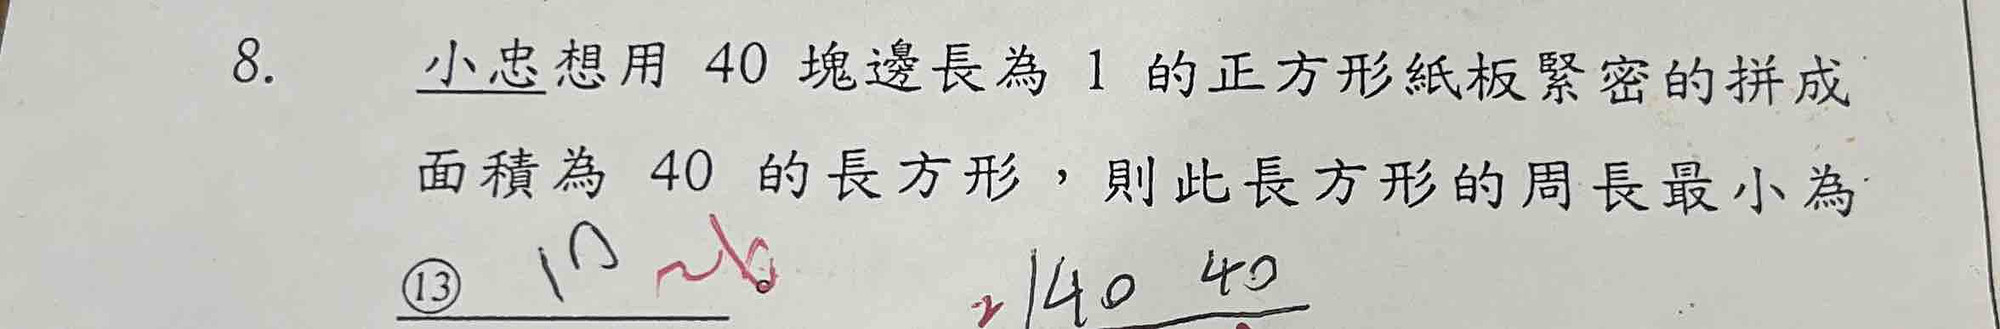 8. 小忠想用 40 塊邊長為 1 的正方形紙板緊密的拼成
面積為 40 的長方形，則此長方形的周長最小為
⑬
2 40 40